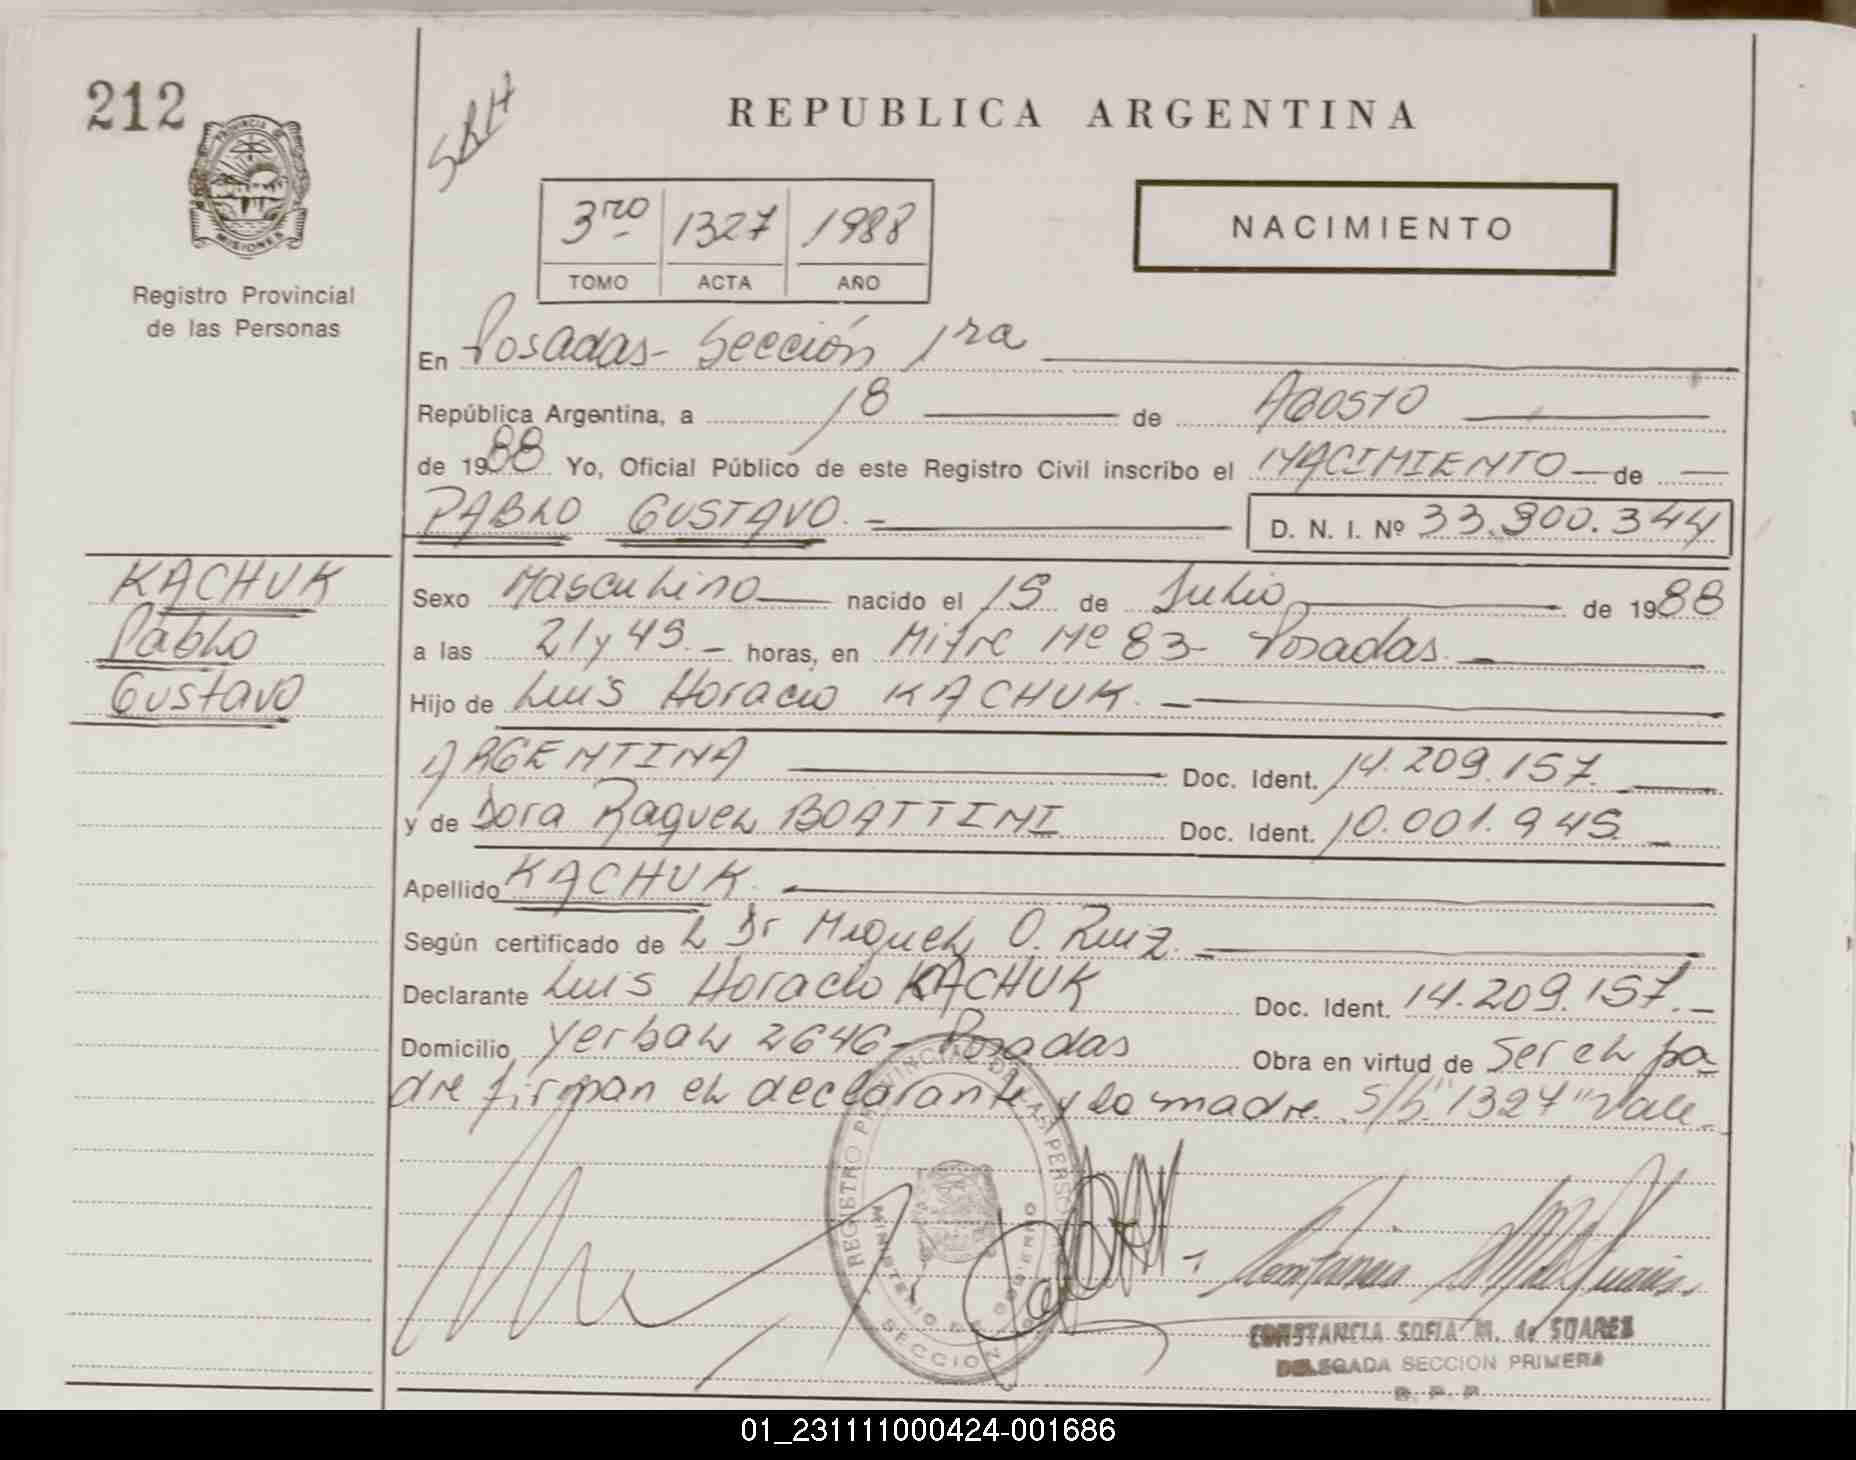 212
SRH
REPUBLICA ARGENTINA
PROVINCIA DE
MISIONES
Registro Provincial
de las Personas
3ro 1327 1988
TOMO ACTA AÑO
NACIMIENTO
En Posadas - Sección 1ra
República Argentina, a 18 de AGOSTO
de 1988 Yo, Oficial Público de este Registro Civil inscribo el NACIMIENTO de
PABLO GUSTAVO.- D. N. I. Nº 33.900.344
KACHUK
Pablo
Gustavo
Sexo Masculino nacido el 15 de Julio de 1988
a las 21 y 45.- horas, en Mitre Nº 83- Posadas.
Hijo de Luis Horacio KACHUK.-
ARGENTINA Doc. Ident. 14.209.157.
y de Dora Raquel BOATTINI Doc. Ident. 10.001.945.-
Apellido KACHUK.
Según certificado de L Dr Miguel O. Ruiz.
Declarante Luis Horacio KACHUK Doc. Ident. 14.209.157.-
Domicilio Yerbal 2646- Posadas Obra en virtud de Ser el pa-
dre firman el declarante y la madre. S/b. "1327" Vale.-
REGISTRO PROVINCIAL DE LAS PERSONAS
MINISTERIO DE GOBIERNO
SECCION
CONSTANCIA SOFIA M. de SUAREZ
DELEGADA SECCION PRIMERA
R. P. P.
01_231111000424-001686